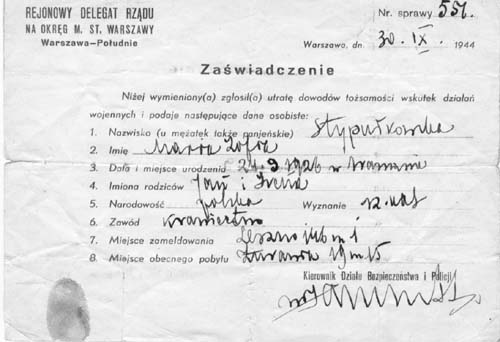 REJONOWY DELEGAT RZĄDU
NA OKRĘG M. ST. WARSZAWY
Warszawa—Południe
Nr. sprawy 551.
Warszawa, dn. 30. IX. 1944
Zaświadczenie
Niżej wymieniony(a) zgłosił(a) utratę dowodów tożsamości wskutek działań
wojennych i podaje następujące dane osobiste:
1. Nazwisko (u mężatek także panieńskie) Stypułkowska
2. Imię Maria Zofia
3. Data i miejsce urodzenia 24. 9 1926 w Warszawie
4. Imiona rodziców Jan i Irena
5. Narodowość polska Wyznanie rz. kat
6. Zawód
7. Miejsce zameldowania Leszno m 1
8. Miejsce obecnego pobytu Żurawia 19 m 15
Kierownik Działu Bezpieczeństwa i Policji